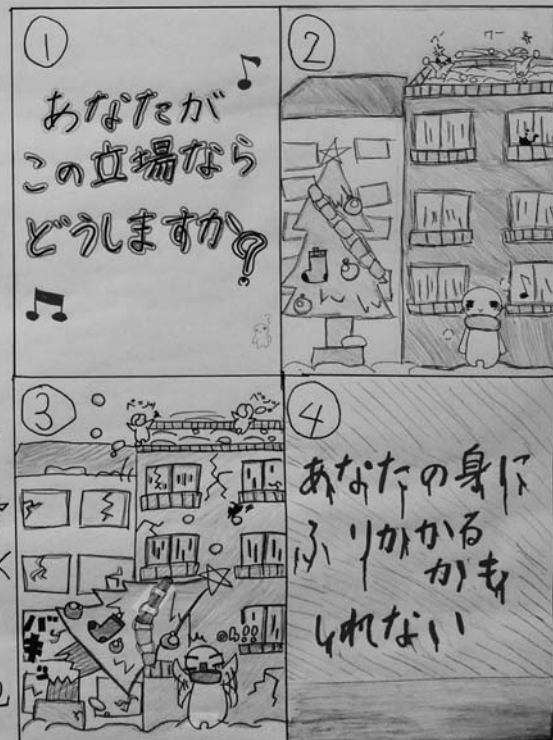 ①
あなたが
この立場なら
どうしますか?
②
ワー
ワー
③
バキッ
oh!!
④
あなたの身に
ふりかかる
かも
しれない